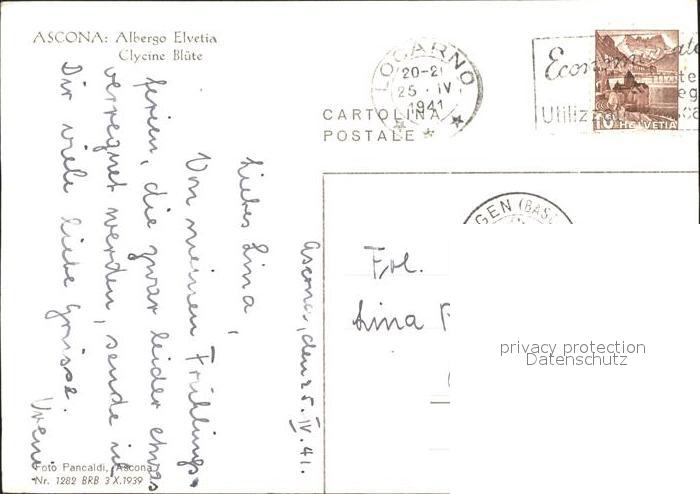 ASCONA: Albergo Elvetia
Clycine Blüte
LOCARNO
20-2
25. IV.
1941
CARTOLINA
POSTALE
Utilizz
10 HELVETIA
GEN (BAS
Ascona, den 25. IV. 41.
Liebes Lina,
Von meinen Frühlings-
ferien, die zwar leider etwas
verregnet werden, sende ich
Dir viele liebe Grüsse.
Vreni
Frl.
Lina
privacy protection
Datenschutz
Foto Pancaldi, Ascona
Nr. 1282 BRB 3 X.1939